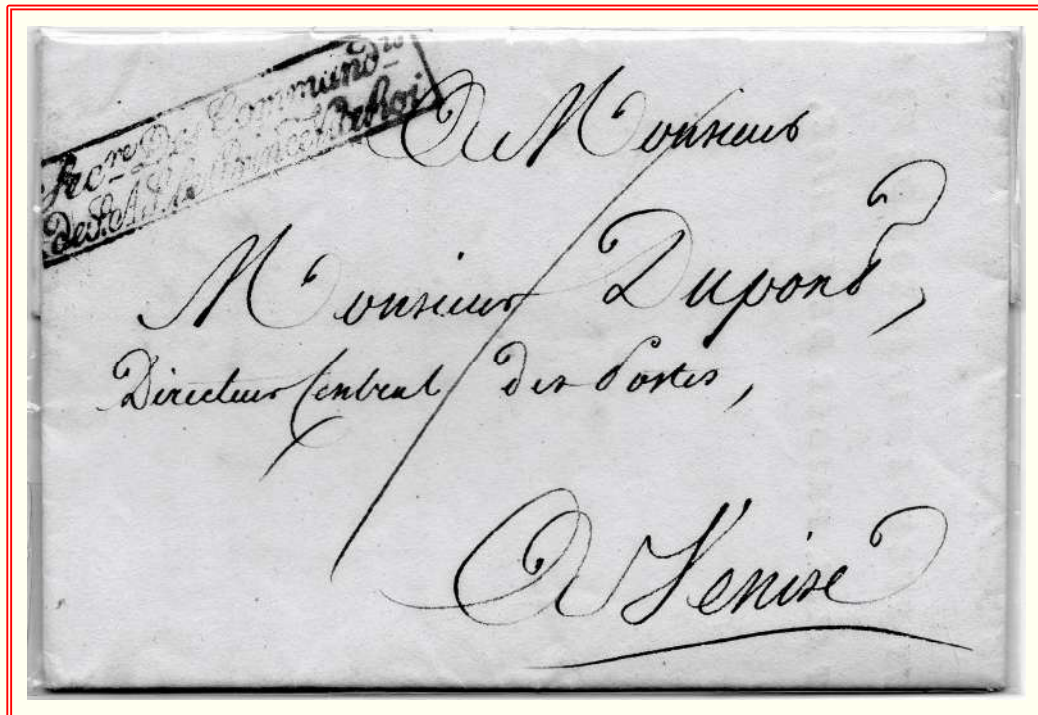 Secre. Des Commandts
De S. A. I. le Prince Vice Roi
A Monsieur
Monsieur Dupond,
Directeur Central des Postes,
A Venise